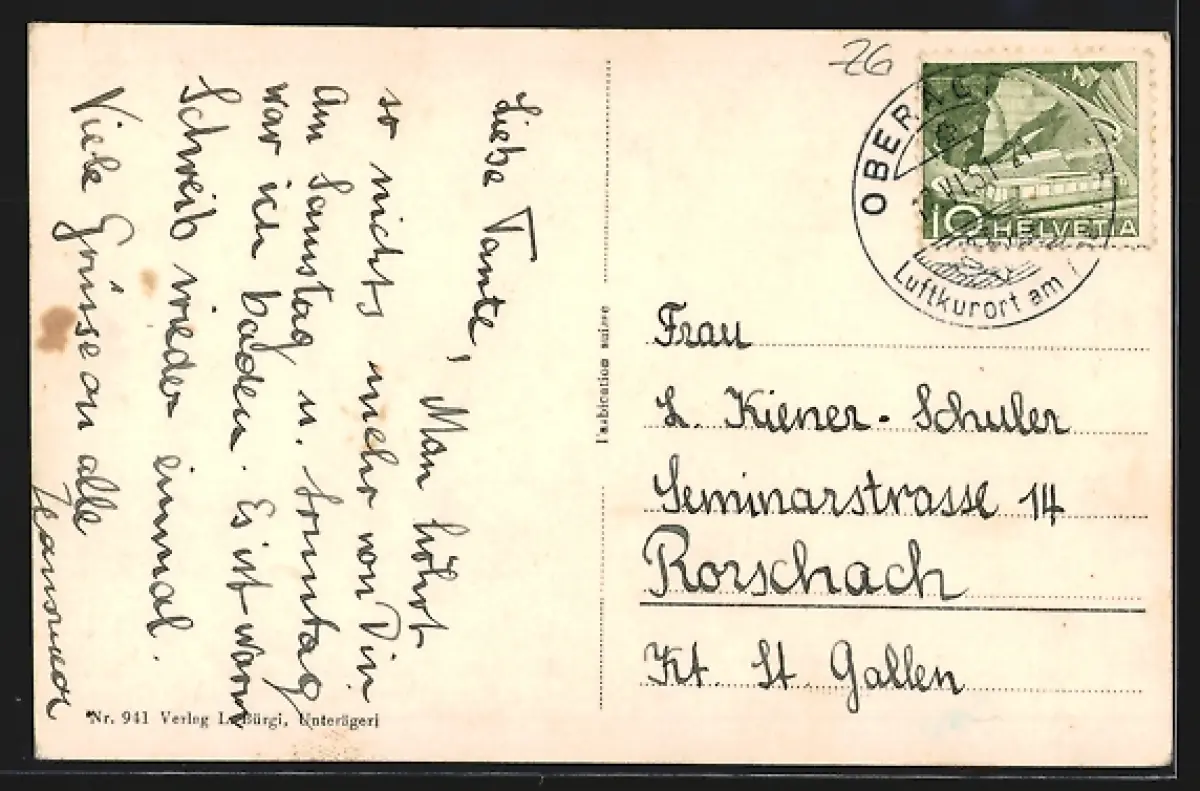 Liebe Tante, Man höhrt
so nichts mehr von Dir.
Am Samstag u. Sonntag
war ich baden. Es ist warm
Schreib wieder einmal.
Viele Grüsse an alle
26
OBERÄG
VI.51
10 HELVETIA
Luftkurort am
Frau
L. Kiener-Schuler
Seminarstrasse 14
Rorschach
Kt. St. Gallen
Fabrication suisse
Nr. 941 Verlag L. Bürgi, Unterägeri